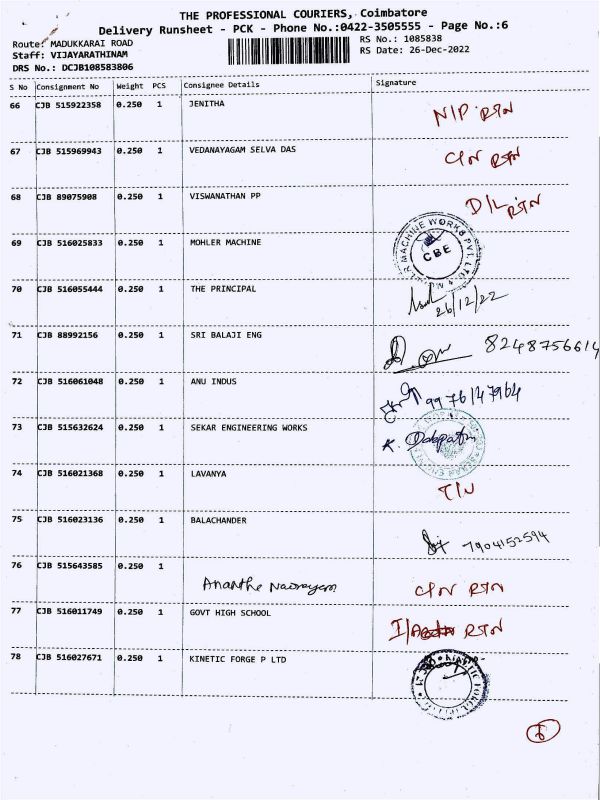 THE PROFESSIONAL COURIERS, Coimbatore
Delivery Runsheet - PCK - Phone No.:0422-3505555 - Page No.:6
Route: MADUKKARAI ROAD RS No.: 1085838
Staff: VIJAYARATHINAM RS Date: 26-Dec-2022
DRS No.: DCJB108583806
S No Consignment No Weight PCS Consignee Details Signature
66 CJB 515922358 0.250 1 JENITHA N/P RTN
67 CJB 515969943 0.250 1 VEDANAYAGAM SELVA DAS C/N RTN
68 CJB 89075908 0.250 1 VISWANATHAN PP D/L RTN
69 CJB 516025833 0.250 1 MOHLER MACHINE MACHINE WORKS PVT. LTD CBE
70 CJB 516055444 0.250 1 THE PRINCIPAL 26/12/22
71 CJB 88992156 0.250 1 SRI BALAJI ENG 8248756614
72 CJB 516061048 0.250 1 ANU INDUS 9976147964
73 CJB 515632624 0.250 1 SEKAR ENGINEERING WORKS K.
74 CJB 516021368 0.250 1 LAVANYA
75 CJB 516023136 0.250 1 BALACHANDER 7904152594
76 CJB 515643585 0.250 1 C/N RTN
77 CJB 516011749 0.250 1 GOVT HIGH SCHOOL RTN
78 CJB 516027671 0.250 1 KINETIC FORGE P LTD